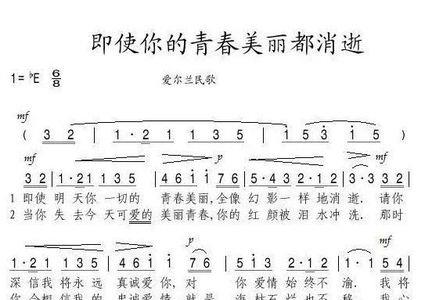 即使你的青春美丽都消逝
1=♭E 6/8
爱尔兰民歌
mf mf
( 3 2 | 1·2 1 3 5 | 1 5 3 1 5 )
mf p
3 2 | 1·2 1 3 5 | 4 6 1 1·7 6 | 5·4 3 1 2 | 3·3 3 2
1 即使 明 天你 一切的 青春美丽,全像 幻 影一 样地消 逝. 请你
2 当你 失 去今 天可爱的 美丽青春,你的 红 颜被 泪水冲 洗. 那时
1·2 1 3 5 | 4 6 1 1 7 6 | 5 1 3 4·2 | 1 3 2
深 信我 将永 远 真诚爱你,对 你 爱情 始终不 渝. 我将